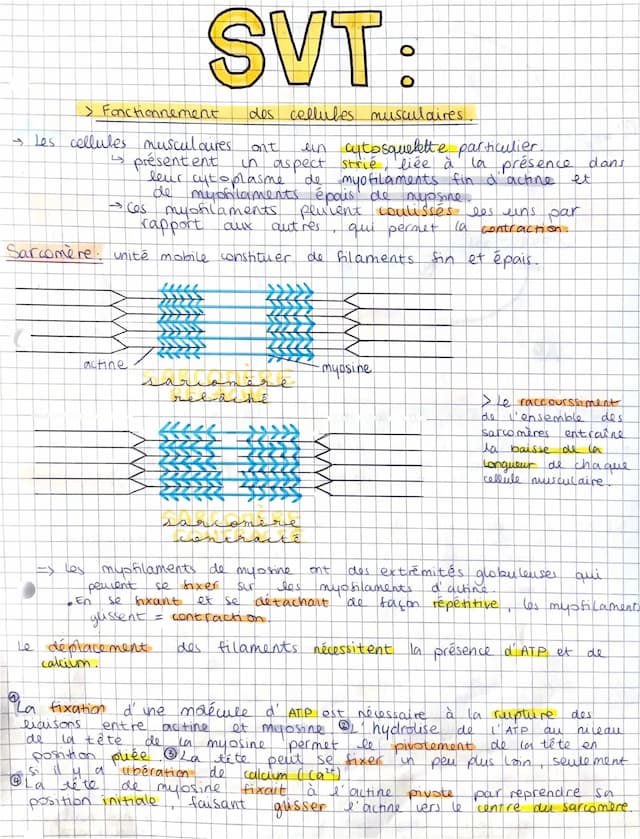 SVT:
> Fonctionnement des cellules musculaires.
→ Les cellules musculaires ont un cytosquelette particulier.
↳ présentent un aspect strié, liée à la présence dans
leur cytoplasme de myofilaments fin d'actine et
de myofilaments épais de myosine.
→ Ces myofilaments peuvent coulissés les uns par
rapport aux autres, qui permet la contraction.
Sarcomère: unité mobile constituer de filaments fin et épais.
actine
myosine
sarcomère
relaché
> Le raccourssiment
de l'ensemble des
sarcomères entraîne
la baisse de la
longueur de chaque
cellule musculaire.
sarcomère
contracté
=> Les myofilaments de myosine ont des extrémités globuleuses qui
peuvent se fixer sur les myofilaments d'actine.
• En se fixant et se détachant de façon répétitive, les myofilaments
glissent = contraction.
Le déplacement des filaments nécessitent la présence d'ATP et de
calcium.
① La fixation d'une molécule d'ATP est nécessaire à la rupture des
liaisons entre actine et myosine. ② L'hydrolise de l'ATP au niveau
de la tête de la myosine permet le pivotement de la tête en
position pliée. ③ La tête peut se fixer un peu plus loin, seulement
si il y a libération de calcium (Ca²⁺)
④ La tête de myosine fixait à l'actine pivote par reprendre sa
position initiale, faisant glisser l'actine vers le centre du sarcomère.